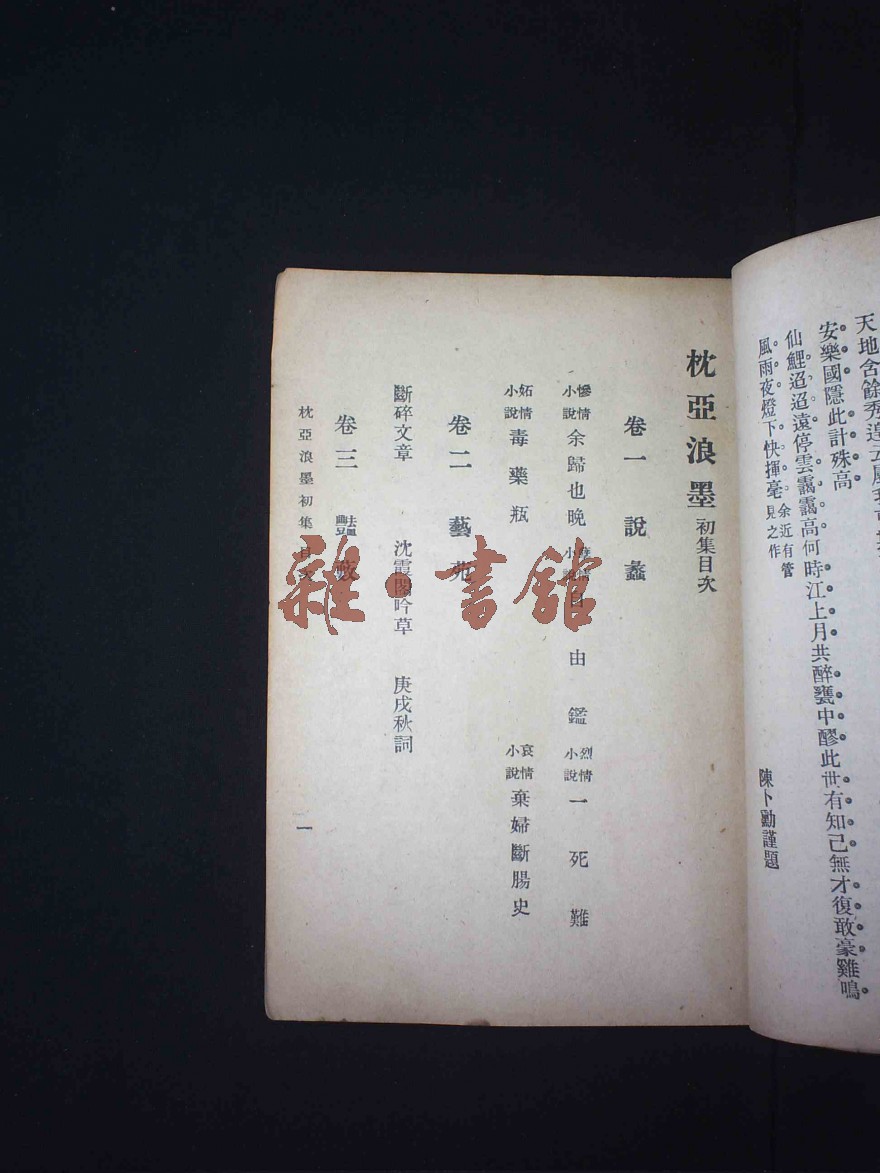 天地含餘秀
安樂國隱此計殊高
仙鯉迢迢遠停雲靄靄高何時江上月共醉甕中醪此世有知己無才復敢豪雞鳴
風雨夜燈下快揮毫 余近有管見之作
陳卜勳謹題
枕亞浪墨 初集目次
卷一 說蠡
慘情小說 余歸也晚 情小說 自由鑑 烈情小說 一死難
妬情小說 毒藥瓶 哀情小說 棄婦斷腸史
卷二 藝苑
斷碎文章 沈霞閣吟草 庚戌秋詞
卷三 豔藪
枕亞浪墨初集 目次 一
雜·書館